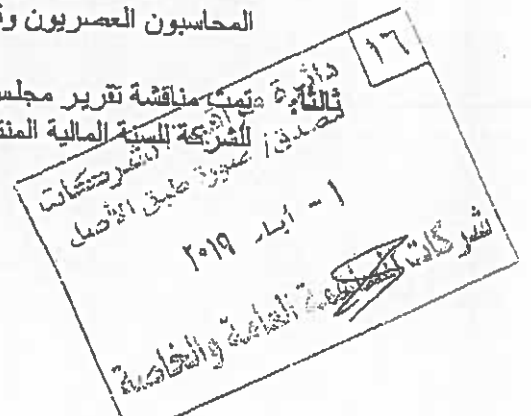 المحاسبون العصريون
ثالثاً: تمت مناقشة تقرير مجلس
للشركة للسنة المالية
١٦
دائرة
مصدق / صورة طبق الأصل
١ - أيار ٢٠١٩
المساهمة العامة والخاصة